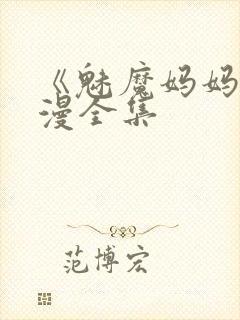 《魅魔妈妈
漫全集
范博宏